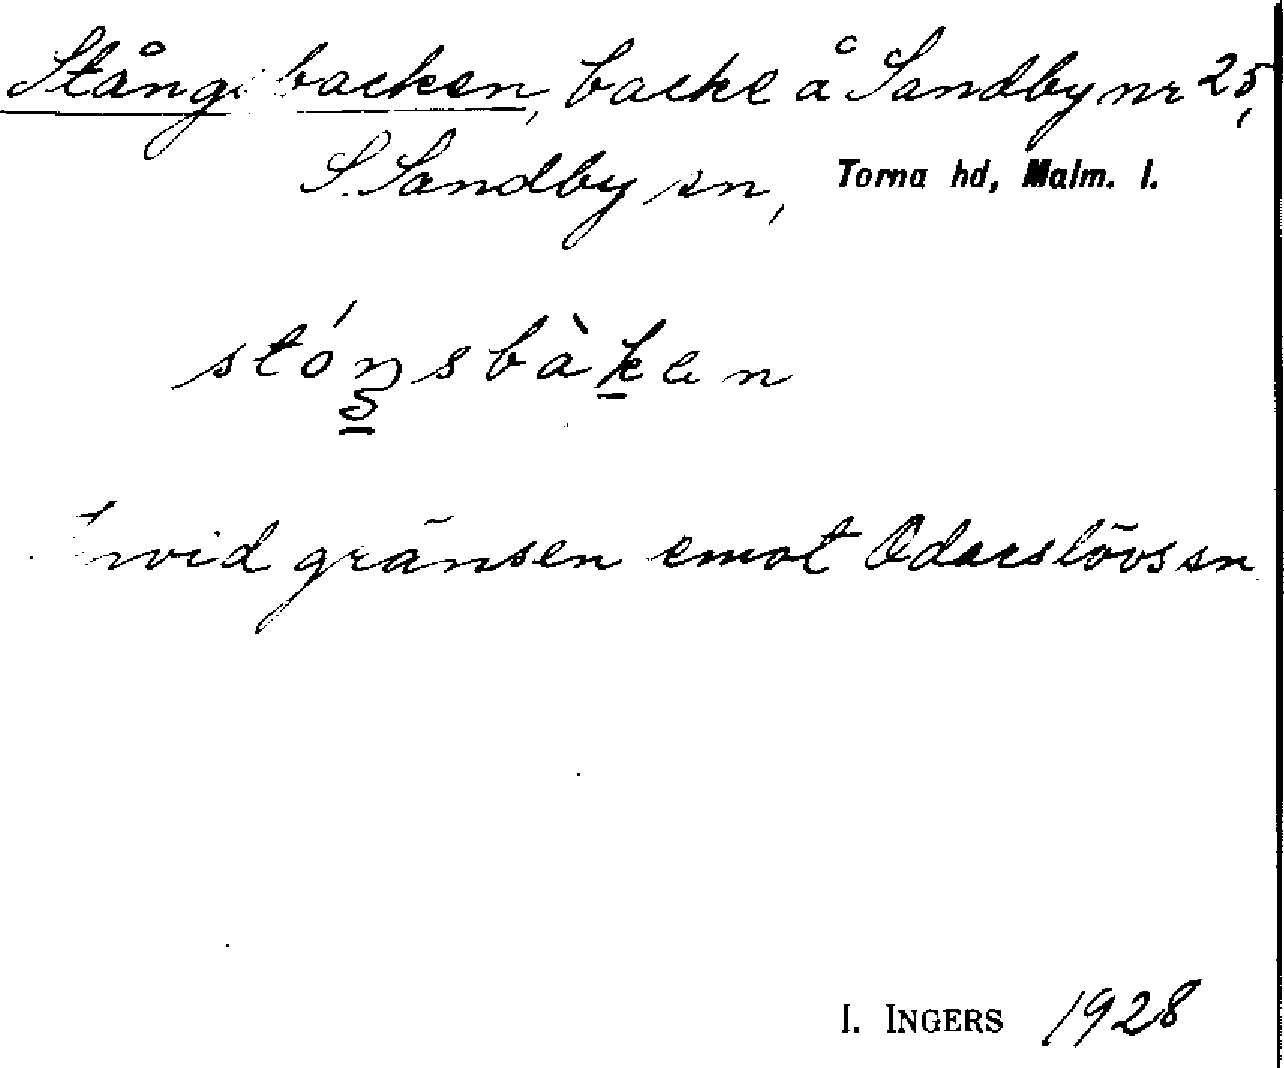 Stång backen, backe å Sandby nr 25,
S. Sandby sn, Torna hd, Malm. l.
stóŋsbàken
vid gränsen emot Odarslövs sn
I. INGERS 1928